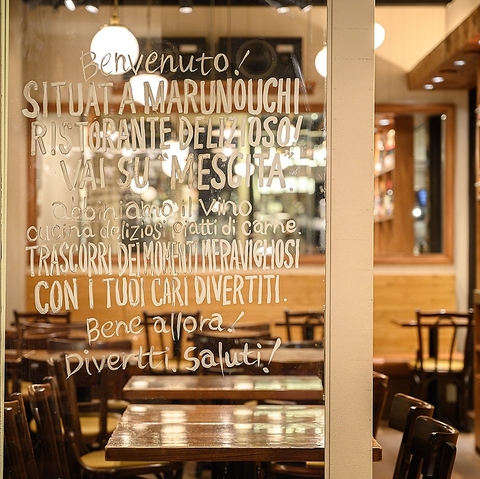 Benvenuto!
SITUAT A MARUNOUCHI
RISTORANTE DELIZIOSO!
VAI SU "MESCITA".
abbiniamo il vino
cucina deliziosi piatti di carne.
TRASCORRI DEI MOMENTI MERAVIGLIOSI
CON I TUOI CARI DIVERTITI.
Bene allora!
Divertti. Saluti!